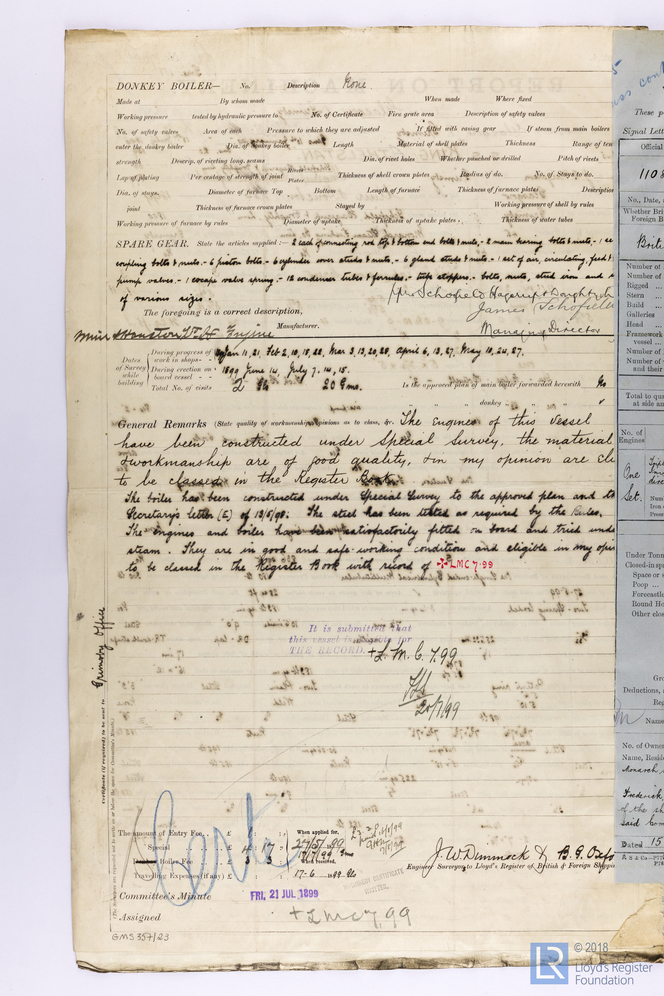 DONKEY BOILER— No. Description None
Made at By whom made When made Where fixed
Working pressure tested by hydraulic pressure to No. of Certificate Fire grate area Description of safety valves
No. of safety valves Area of each Pressure to which they are adjusted If fitted with easing gear If steam from main boilers
enter the donkey boiler Dia. of donkey boiler Length Material of shell plates Thickness Range of ten
strength Descrip. of riveting long. seams Dia. of rivet holes Whether punched or drilled Pitch of rivets
Lap of plating Percentage of strength of joint Rivets Plates Thickness of shell crown plates Radius of do. No. of Stays to do.
Dia. of stays. Diameter of furnace Top Bottom Length of furnace Thickness of furnace plates Description
joint Thickness of furnace crown plates Stayed by Working pressure of shell by rules
Working pressure of furnace by rules Diameter of uptake Thickness of uptake plates Thickness of water tubes
SPARE GEAR. State the articles supplied:— 2 each of connecting rod top & bottom end bolts & nuts,- 2 main bearing bolts & nuts,- 1 se
coupling bolts & nuts - 6 piston bolts - 6 cylinder cover studs & nuts - 6 gland studs & nuts - 1 set of air, circulating, feed &
pump valves - 1 escape valve spring - 12 condenser tubes & ferrules - tube stoppers - bolts, nuts, sheet iron and
of various sizes.
The foregoing is a correct description,
Schofield Hagerup & Doughty
James Schofield
Manufacturer.
Managing Director
Dates of Survey while building
During progress of work in shops- Jan 11, 21, Feb 2, 10, 15, 22, Mar 3, 13, 20, 28, April 6, 13, 27, May 10, 24, 27.
During erection on board vessel - 1899 June 14, July 7, 14, 15.
Total No. of visits 20 Gms. Is the approved plan of main boiler forwarded herewith No
" " " donkey " " "
General Remarks (State quality of workmanship, opinions as to class, &c. The Engines of this Vessel
have been constructed under Special Survey, the material
& workmanship are of good quality, & in my opinion are
to be classed in the Register Book.
The boiler has been constructed under Special Survey to the approved plan and
Secretary's letter (E) of 12/5/98. The steel has been tested as required by the Rules.
The engines and boiler have been satisfactorily fitted on board and tried und
steam. They are in good and safe working condition and eligible in my opin
to be classed in the Register Book with record of ✠ LMC 7.99
It is submitted that
this vessel is eligible for
THE RECORD. + L.M.C. 7.99
20/7/99
Grimsby Office
Certificate (if required) to be sent to
Cert
The amount of Entry Fee.. £ : : When applied for,
Special £ 14 : 17 : 27/5/99
Boiler Fee £ 3 : 3 : When received,
Travelling Expenses (if any) £ : : 17-6 1899
J. W. Dimmock &
Engineer Surveyor to Lloyd's Register of British & Foreign Shipping
Committee's Minute FRI. 21 JUL 1899
Assigned + LMC 7,99
GMS357/23
These p
Signal Lett
Official
1108
No., Date,
Whether Brit
Foreign B
Briti
Number of
Number of
Rigged
Stern
Build
Galleries
Head
Framework
vessel
Number of
Number of
and their
Total to qu
at side a
No. of
Engines
One
Set.
Under Tonn
Closed-in sp
Space or
Poop
Forecastle
Round Ho
Other clos
Gro
Deductions,
Reg
Name
No. of Owne
Name, Resid
Monarch
Frederick
of the
said Com
Dated 15
© 2018
LR
Lloyd's Register
Foundation